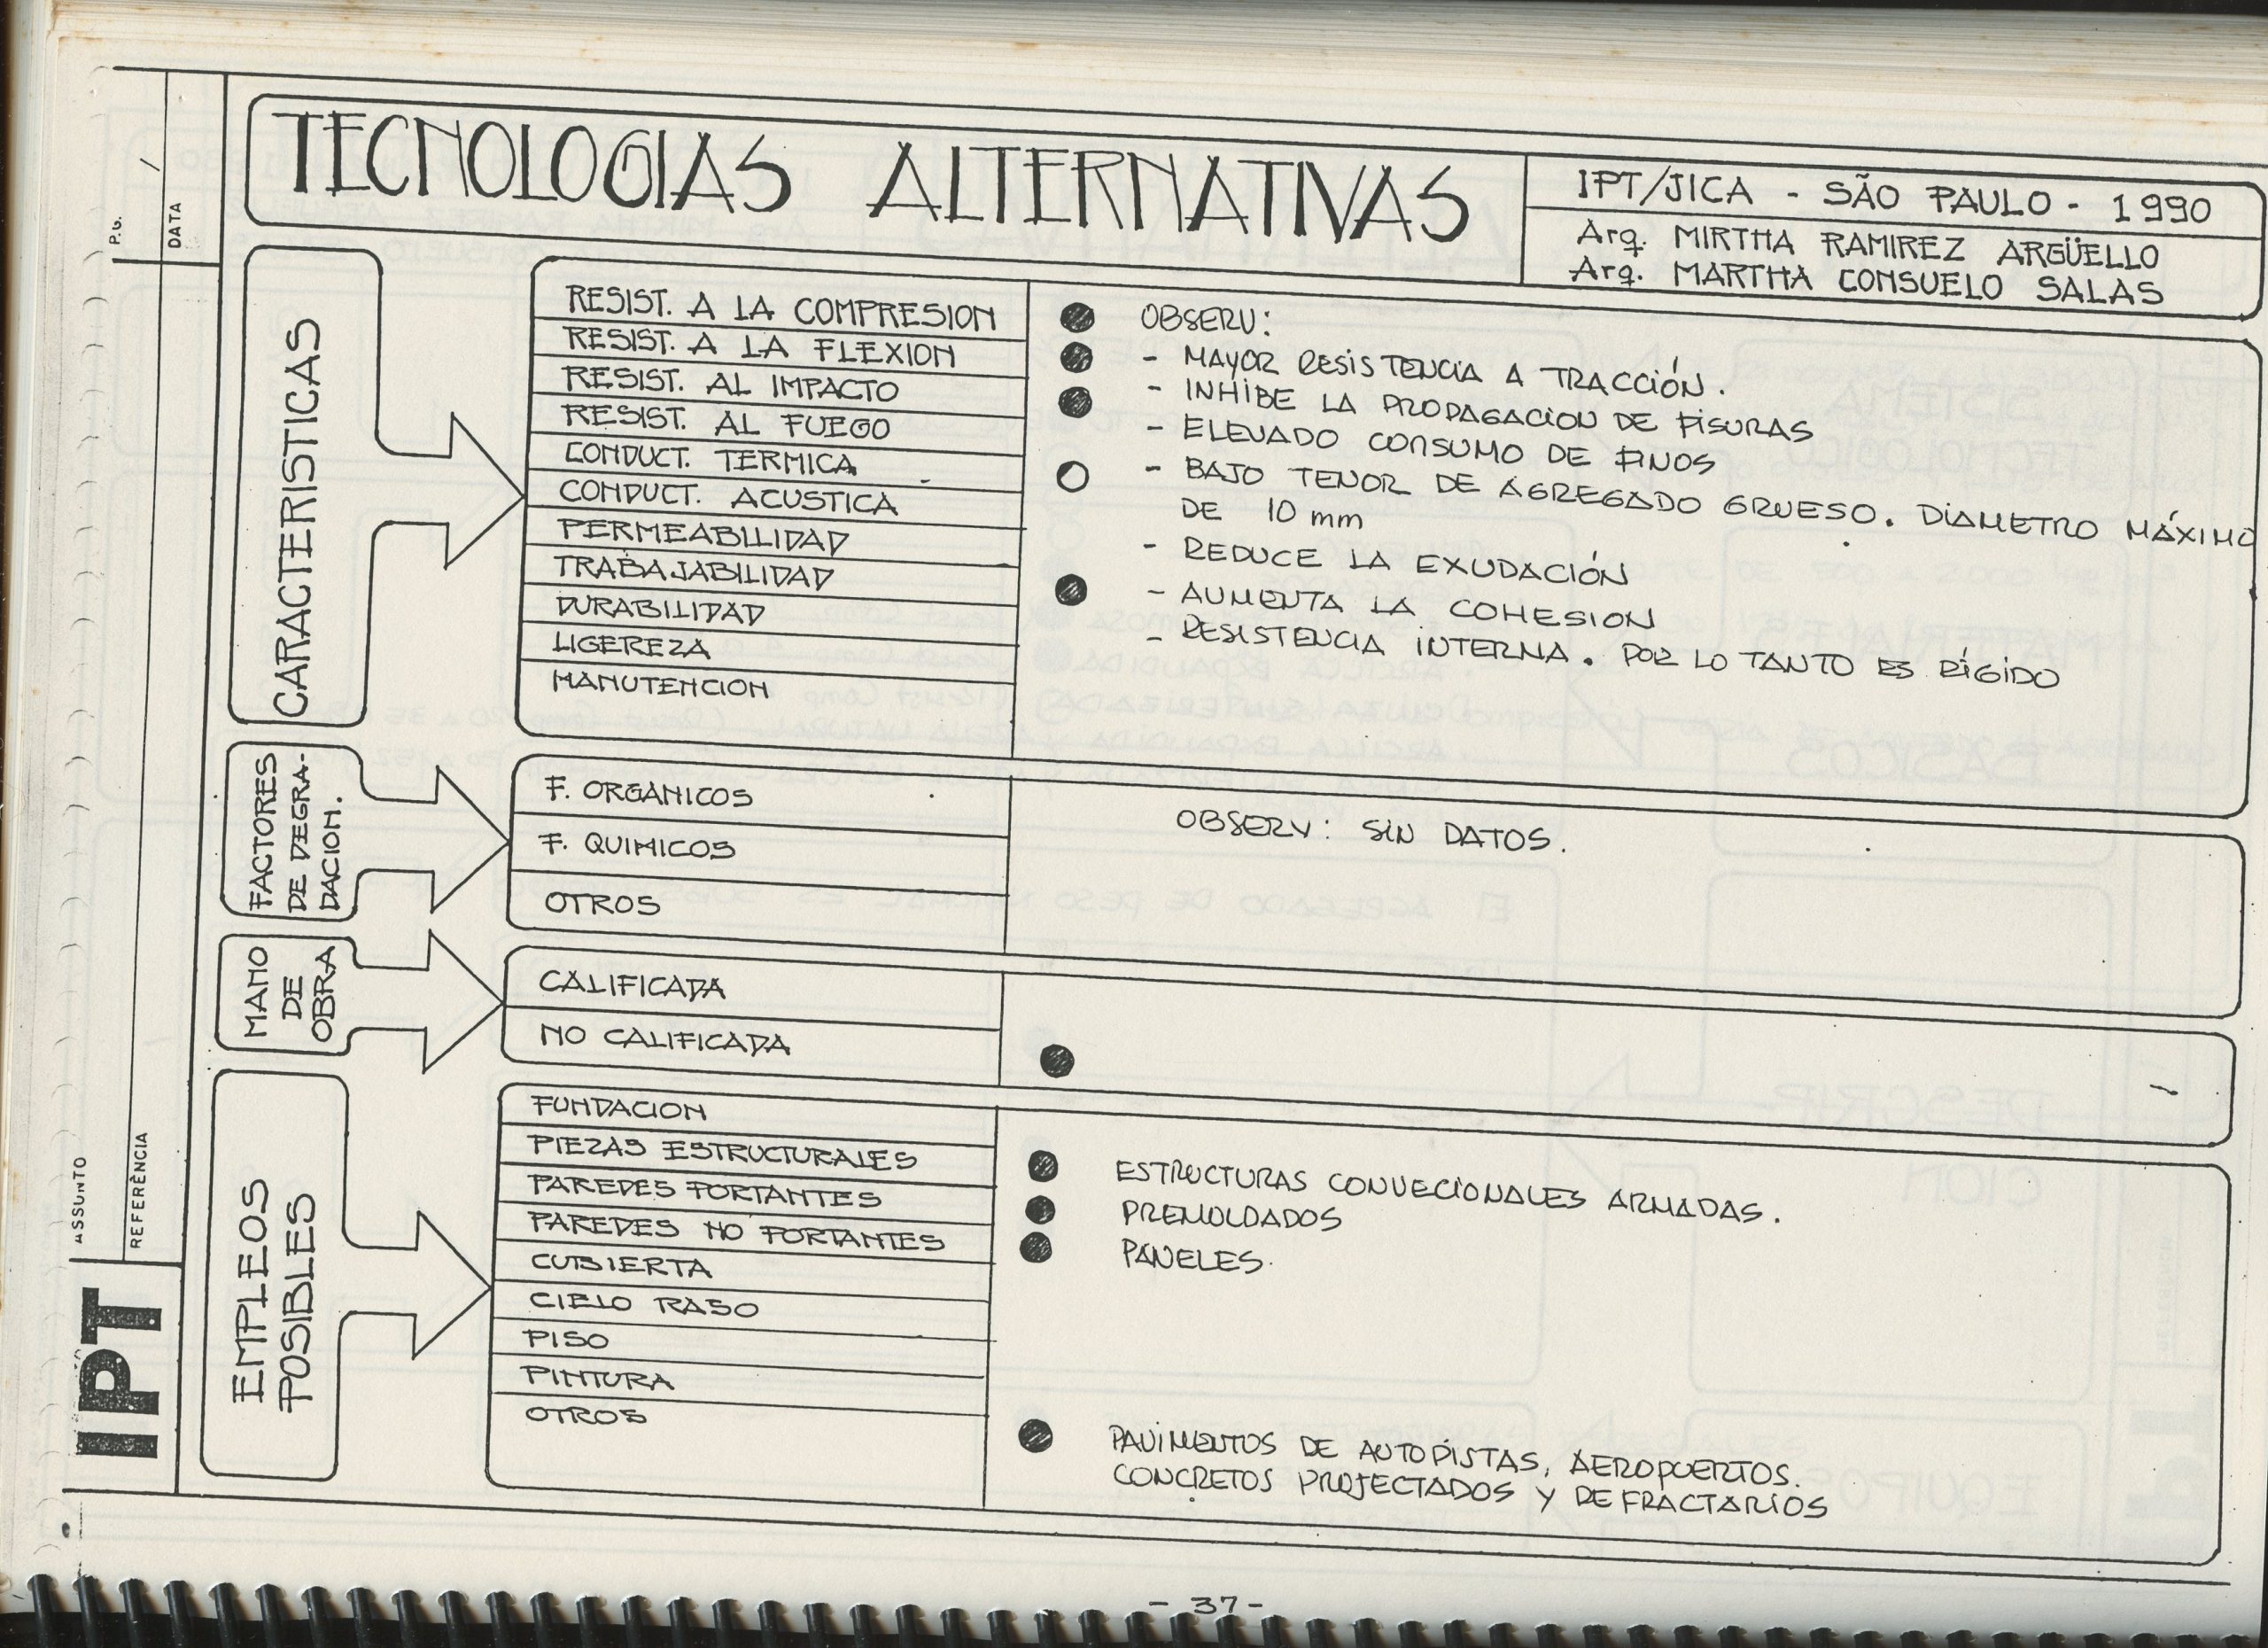 TECNOLOGIAS ALTERNATIVAS
IPT/JICA - SÃO PAULO - 1990
Arq. MIRTHA RAMIREZ ARGÜELLO
Arq. MARTHA CONSUELO SALAS
P.G.
DATA
/
ASSUNTO
REFERÊNCIA
IPT
CARACTERISTICAS
RESIST. A LA COMPRESION
RESIST. A LA FLEXION
RESIST. AL IMPACTO
RESIST. AL FUEGO
CONDUCT. TERMICA
CONDUCT. ACUSTICA
PERMEABILIDAD
TRABAJABILIDAD
DURABILIDAD
LIGEREZA
MANUTENCION
OBSERV:
- MAYOR RESISTENCIA A TRACCIÓN.
- INHIBE LA PROPAGACION DE FISURAS
- ELEVADO CONSUMO DE FINOS
- BAJO TENOR DE AGREGADO GRUESO. DIAMETRO MÁXIMO
DE 10 mm
- REDUCE LA EXUDACIÓN
- AUMENTA LA COHESION
- RESISTENCIA INTERNA. POR LO TANTO ES RÍGIDO
FACTORES
DE DEGRA-
DACION.
F. ORGANICOS
F. QUIMICOS
OTROS
OBSERV: SIN DATOS.
MANO
DE
OBRA
CALIFICADA
NO CALIFICADA
EMPLEOS
POSIBLES
FUNDACION
PIEZAS ESTRUCTURALES
PAREDES PORTANTES
PAREDES NO PORTANTES
CUBIERTA
CIELO RASO
PISO
PINTURA
OTROS
ESTRUCTURAS CONVECIONALES ARMADAS.
PREMOLDADOS
PANELES.
PAVIMENTOS DE AUTOPISTAS, AEROPUERTOS.
CONCRETOS PROJECTADOS Y DE FRACTARIOS
- 37 -